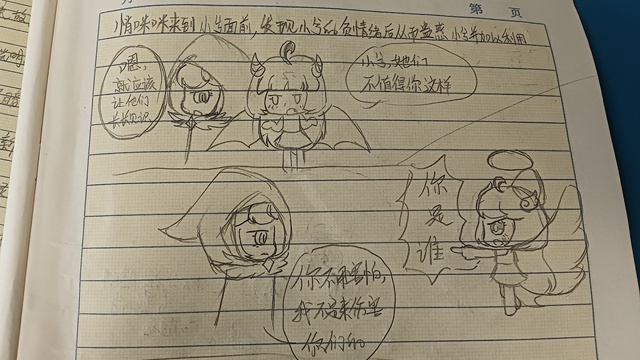 第 页
悄咪咪来到小兮面前,发现小兮的负情绪后从而蛊惑小兮并加以利用
嗯,
就应该
让他们
长长见识
小兮,她们
不值得你这样
你
是
谁
你不用害怕,
我不是来伤害
你们的